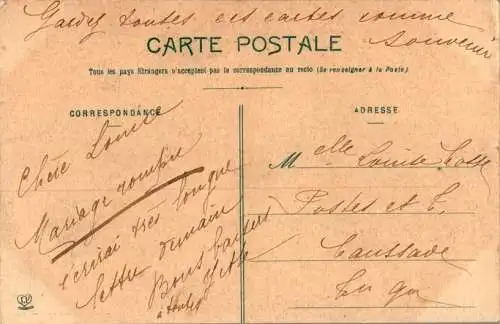 Gardez toutes ces cartes comme
souvenir
CARTE POSTALE
Tous les pays étrangers n'acceptent pas la correspondance au recto (Se renseigner à la Poste)
CORRESPONDANCE
Chère Louise
Mariage rompu
t'écrirai très longue
lettre demain
Bons baisers
à toutes
ADRESSE
Melle Louise
Postes et T.
Caussade